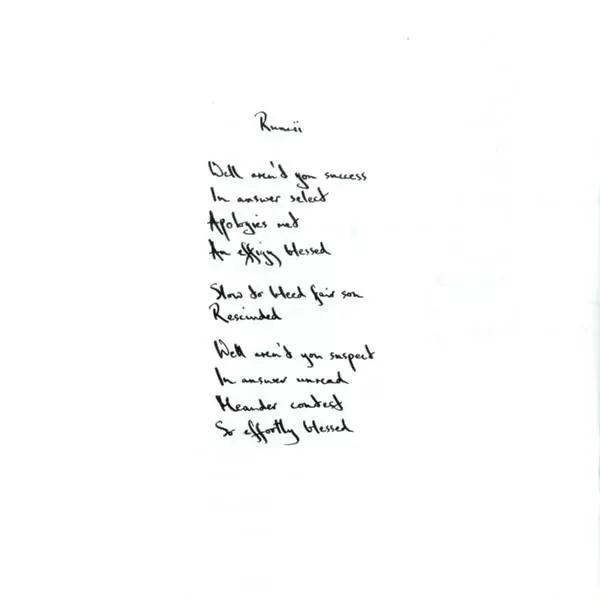 Rumii
Well aren't you success
In answer select
Apologies met
An effigy blessed
Slow to bleed fair son
Rescinded
Well aren't you suspect
In answer unread
Meander contest
So effortly blessed